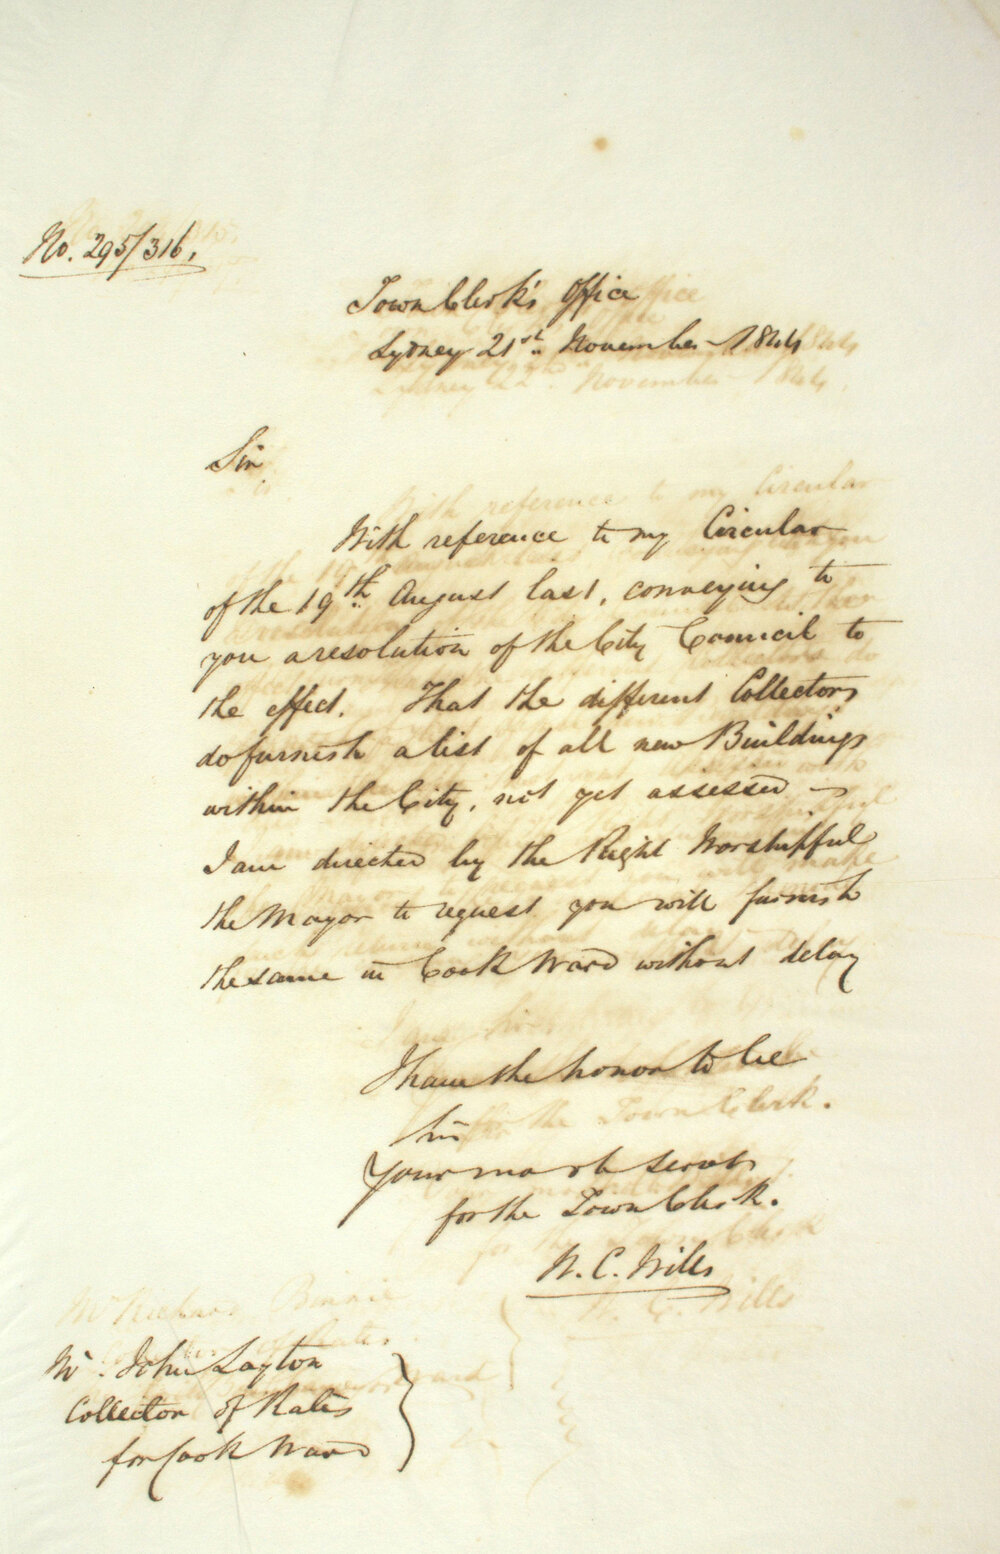 No. 295/316.
Town Clerk's Office
Sydney 21st November 1844
Sir
With reference to my Circular
of the 19th August last, conveying to
you a resolution of the City Council to
the effect. That the different Collectors
do furnish a list of all new Buildings
within the City, not yet assessed –
I am directed by the Right Worshipful
the Mayor to request you will furnish
the same in Cook Ward without delay
I have the honor to be
Sir
Your most servt
for the Town Clerk.
W. C. Wills
Mr. John Layton
Collector of Rates
for Cook Ward